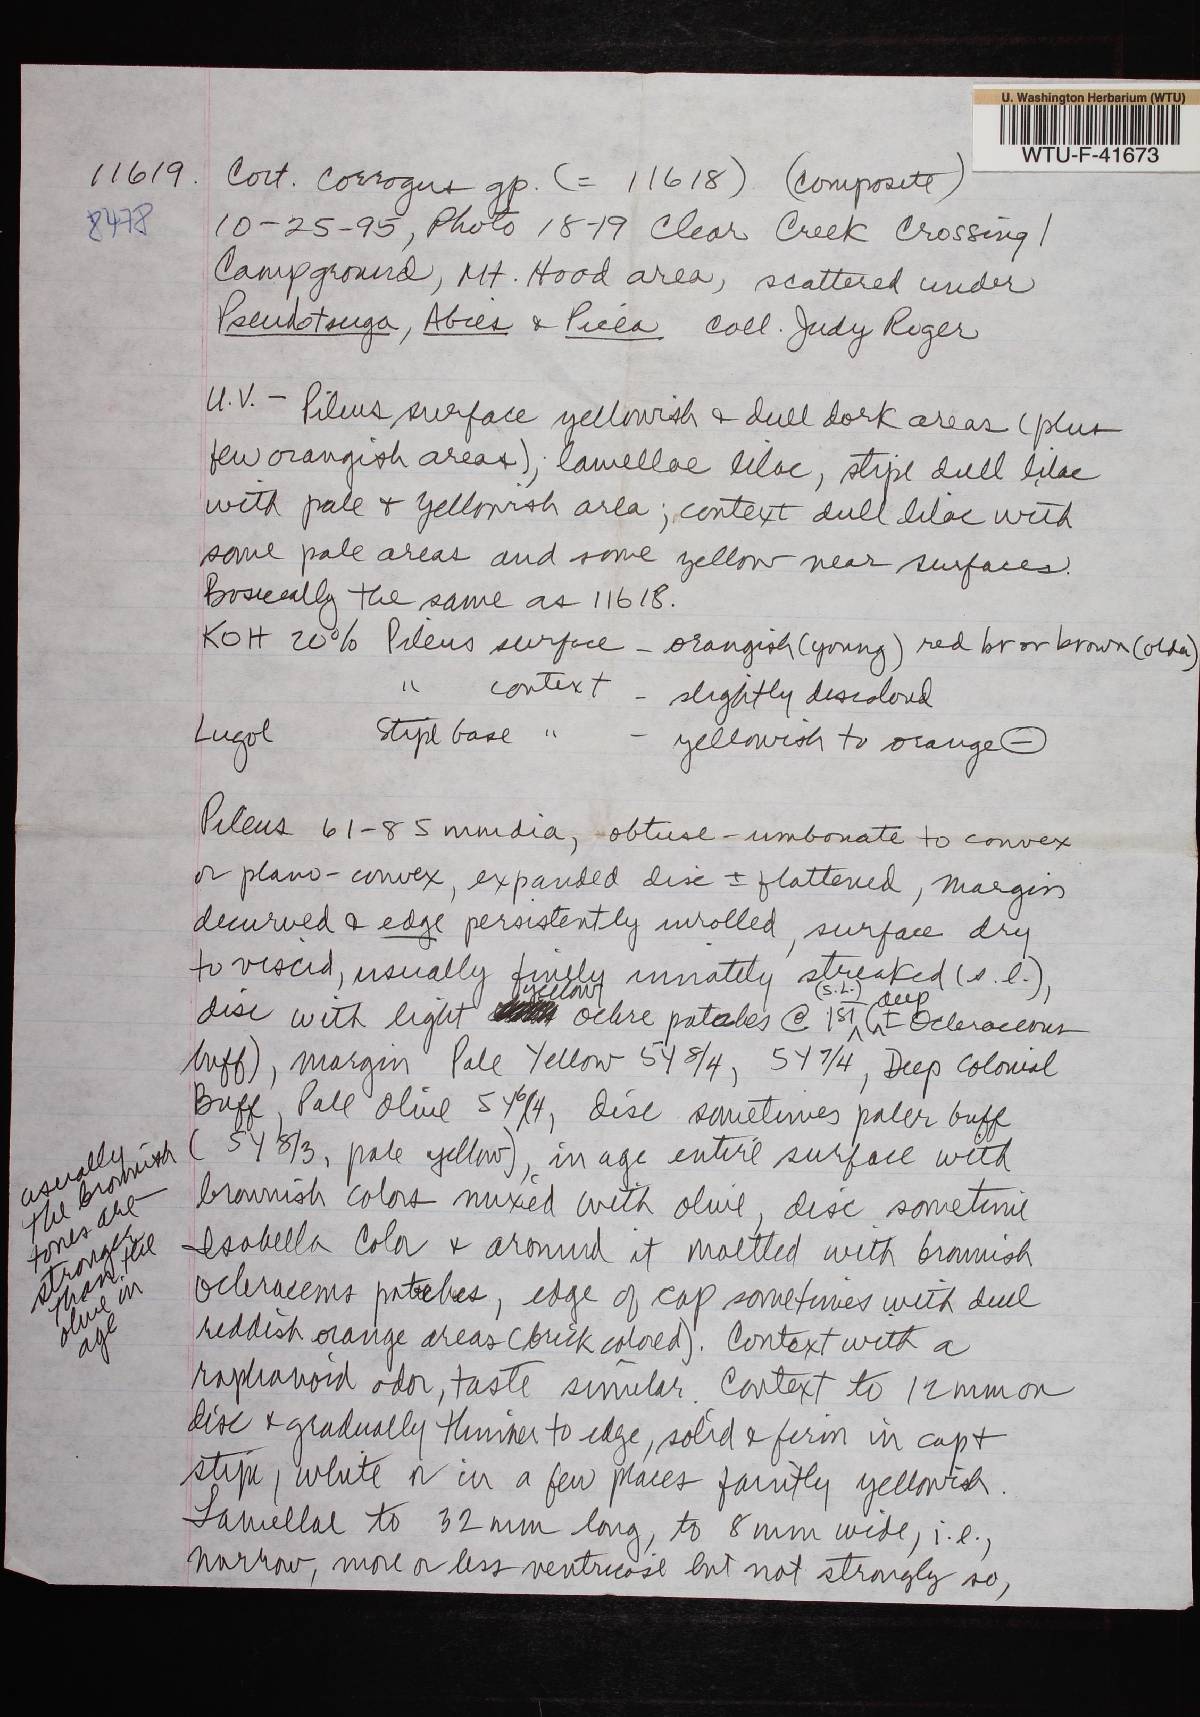 U. Washington Herbarium (WTU)
WTU-F-41673
11619. Cort. corrogus gp. (= 11618) (composite)
8478
10-25-95, Photo 18-19 Clear Creek Crossing/
Campground, Mt. Hood area, scattered under
Pseudotsuga, Abies & Picea coll. Judy Roger
U.V. - Pileus surface yellowish & dull dark areas (plus
few orangish areas), lamellae lilac, stipe dull lilac
with pale & yellowish area; context dull lilac with
some pale areas and some yellow near surfaces.
Basically the same as 11618.
KOH 20% Pileus surface - orangish (young) red br or brown (older)
" context - slightly discolored
Lugol Stipe base " - yellowish to orange (-)
Pileus 61-85 mm dia, obtuse-umbonate to convex
or plano-convex, expanded disc ± flattened, margin
decurved & edge persistently inrolled, surface dry
to viscid, usually finely innately streaked (s.l.),
disc with light yellow ochre patches @ 1st (s.l.) (± deep Ochraceous
buff), margin Pale Yellow 5Y 8/4, 5Y 7/4, Deep Colonial
Buff, Pale Olive 5Y 6/4, disc sometimes paler buff
(5Y 8/3, pale yellow), in age entire surface with
brownish colors mixed with olive, disc sometime
Isabella Color & around it mottled with brownish
ochraceous patches, edge of cap sometimes with dull
reddish orange areas (brick colored). Context with a
raphanoid odor, taste similar. Context to 12 mm on
disc & gradually thinner to edge, solid & firm in cap &
stipe, white or in a few places faintly yellowish.
Lamellae to 32 mm long, to 8 mm wide, i.e.,
narrow, more or less ventricose but not strongly so,
usually
the brownish
tones are
stronger
than the
olive in
age